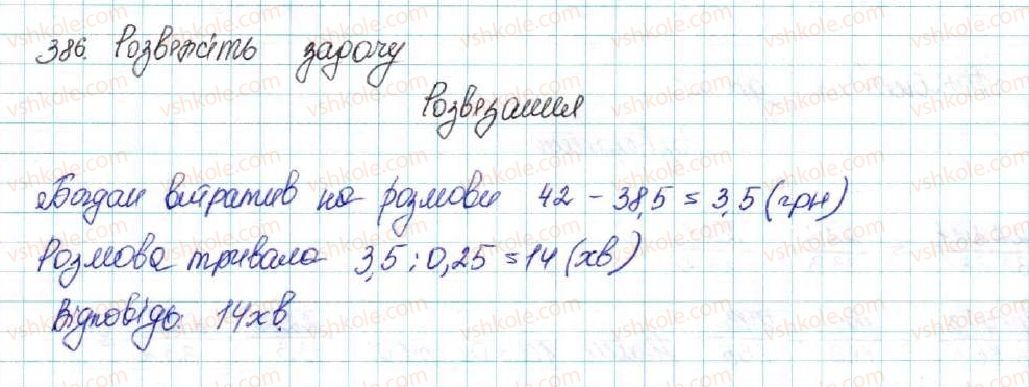 386. Розвяжіть задачу
Розвязання
Богдан витратив на розмови 42 - 38,5 = 3,5 (грн)
Розмова тривала 3,5 : 0,25 = 14 (хв)
Відповідь: 14хв.